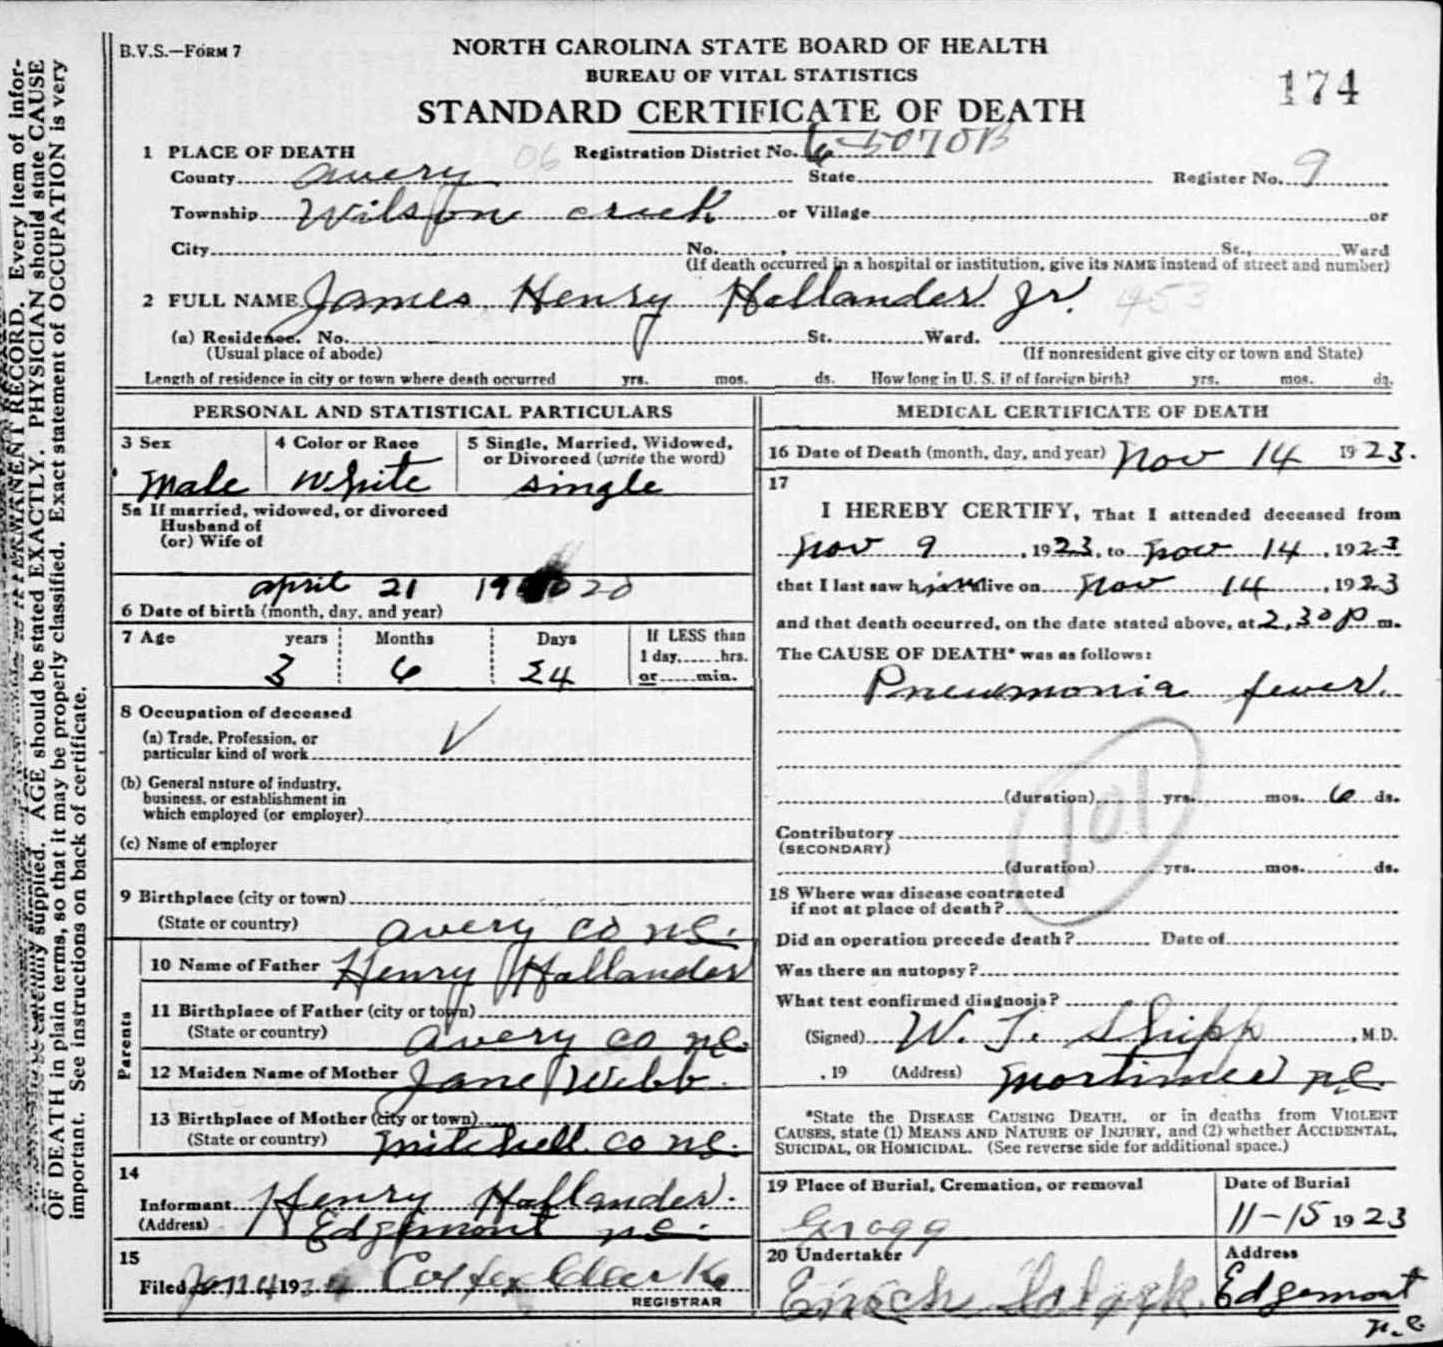 B.V.S.—FORM 7
NORTH CAROLINA STATE BOARD OF HEALTH
BUREAU OF VITAL STATISTICS
STANDARD CERTIFICATE OF DEATH
174
1 PLACE OF DEATH
06
Registration District No. 6 5070B
County avery State Register No. 9
Township Wilson creek or Village or
City No. , St., Ward
(If death occurred in a hospital or institution, give its NAME instead of street and number)
2 FULL NAME James Henry Hollander Jr. 453
(a) Residence. No. St. Ward.
(Usual place of abode) (If nonresident give city or town and State)
Length of residence in city or town where death occurred yrs. mos. ds. How long in U. S. if of foreign birth? yrs. mos. ds.
PERSONAL AND STATISTICAL PARTICULARS
3 Sex 4 Color or Race 5 Single, Married, Widowed,
or Divorced (write the word)
male white single
5a If married, widowed, or divorced
Husband of
(or) Wife of
april 21 19 20
6 Date of birth (month, day, and year)
7 Age years Months Days If LESS than
1 day, hrs.
3 6 24 or min.
8 Occupation of deceased
(a) Trade, Profession, or
particular kind of work
(b) General nature of industry,
business, or establishment in
which employed (or employer)
(c) Name of employer
9 Birthplace (city or town)
(State or country) avery co nc.
Parents
10 Name of Father Henry Hollander
11 Birthplace of Father (city or town)
(State or country) avery co nc.
12 Maiden Name of Mother Jane Webb.
13 Birthplace of Mother (city or town)
(State or country) mitchell co nc.
14
Informant Henry Hollander.
(Address) Edgemont nc.
15
Filed 19 Colfex Clark
REGISTRAR
MEDICAL CERTIFICATE OF DEATH
16 Date of Death (month, day, and year) nov 14 1923.
17
I HEREBY CERTIFY, That I attended deceased from
nov 9, 1923, to nov 14, 1923
that I last saw him alive on nov 14, 1923
and that death occurred, on the date stated above, at 2,30 P m.
The CAUSE OF DEATH* was as follows:
Pneumonia fever.
101
(duration) yrs. mos. 6 ds.
Contributory
(SECONDARY)
(duration) yrs. mos. ds.
18 Where was disease contracted
if not at place of death?
Did an operation precede death? Date of
Was there an autopsy?
What test confirmed diagnosis?
(Signed) W. T. Shipp, M.D.
, 19 (Address) mortimer nc.
*State the DISEASE CAUSING DEATH, or in deaths from VIOLENT
CAUSES, state (1) MEANS AND NATURE OF INJURY, and (2) whether ACCIDENTAL,
SUICIDAL, OR HOMICIDAL. (See reverse side for additional space.)
19 Place of Burial, Cremation, or removal Date of Burial
Gragg 11-15 1923
20 Undertaker Address
Enoch Edgemont
n.c
mation should be carefully supplied. AGE should be stated EXACTLY. PHYSICIAN should state CAUSE
OF DEATH in plain terms, so that it may be properly classified. Exact statement of OCCUPATION is very
important. See instructions on back of certificate.
PERMANENT RECORD. Every item of infor-